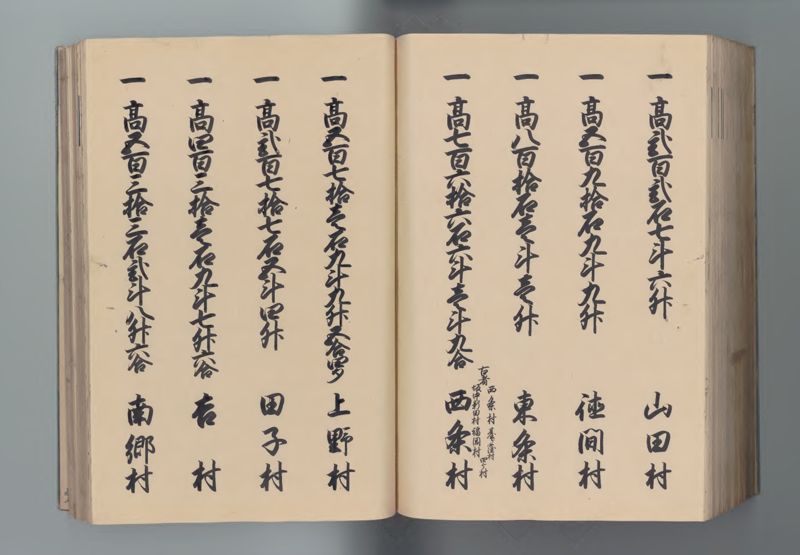 一 高弐百弐石七斗六升 山田村
一 高五百九拾石九斗九升 徳間村
一 高八百拾石壱斗壱升 東条村
一 高七百六拾六石六斗壱斗九合 西条村
西条村
坂中新田村 福岡村
一 高五百七拾壱石九斗九升五合 上野村
一 高弐百七拾七石五斗四升 田子村
一 高四百三拾壱石九斗七升六合 吉村
一 高五百三拾三石弐斗八升六合 南郷村